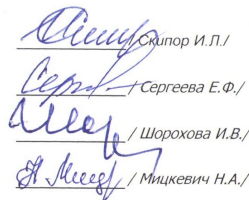 /Скипор И.Л./
/ Сергеева Е.Ф./
/ Шорохова И.В./
/ Мицкевич Н.А./